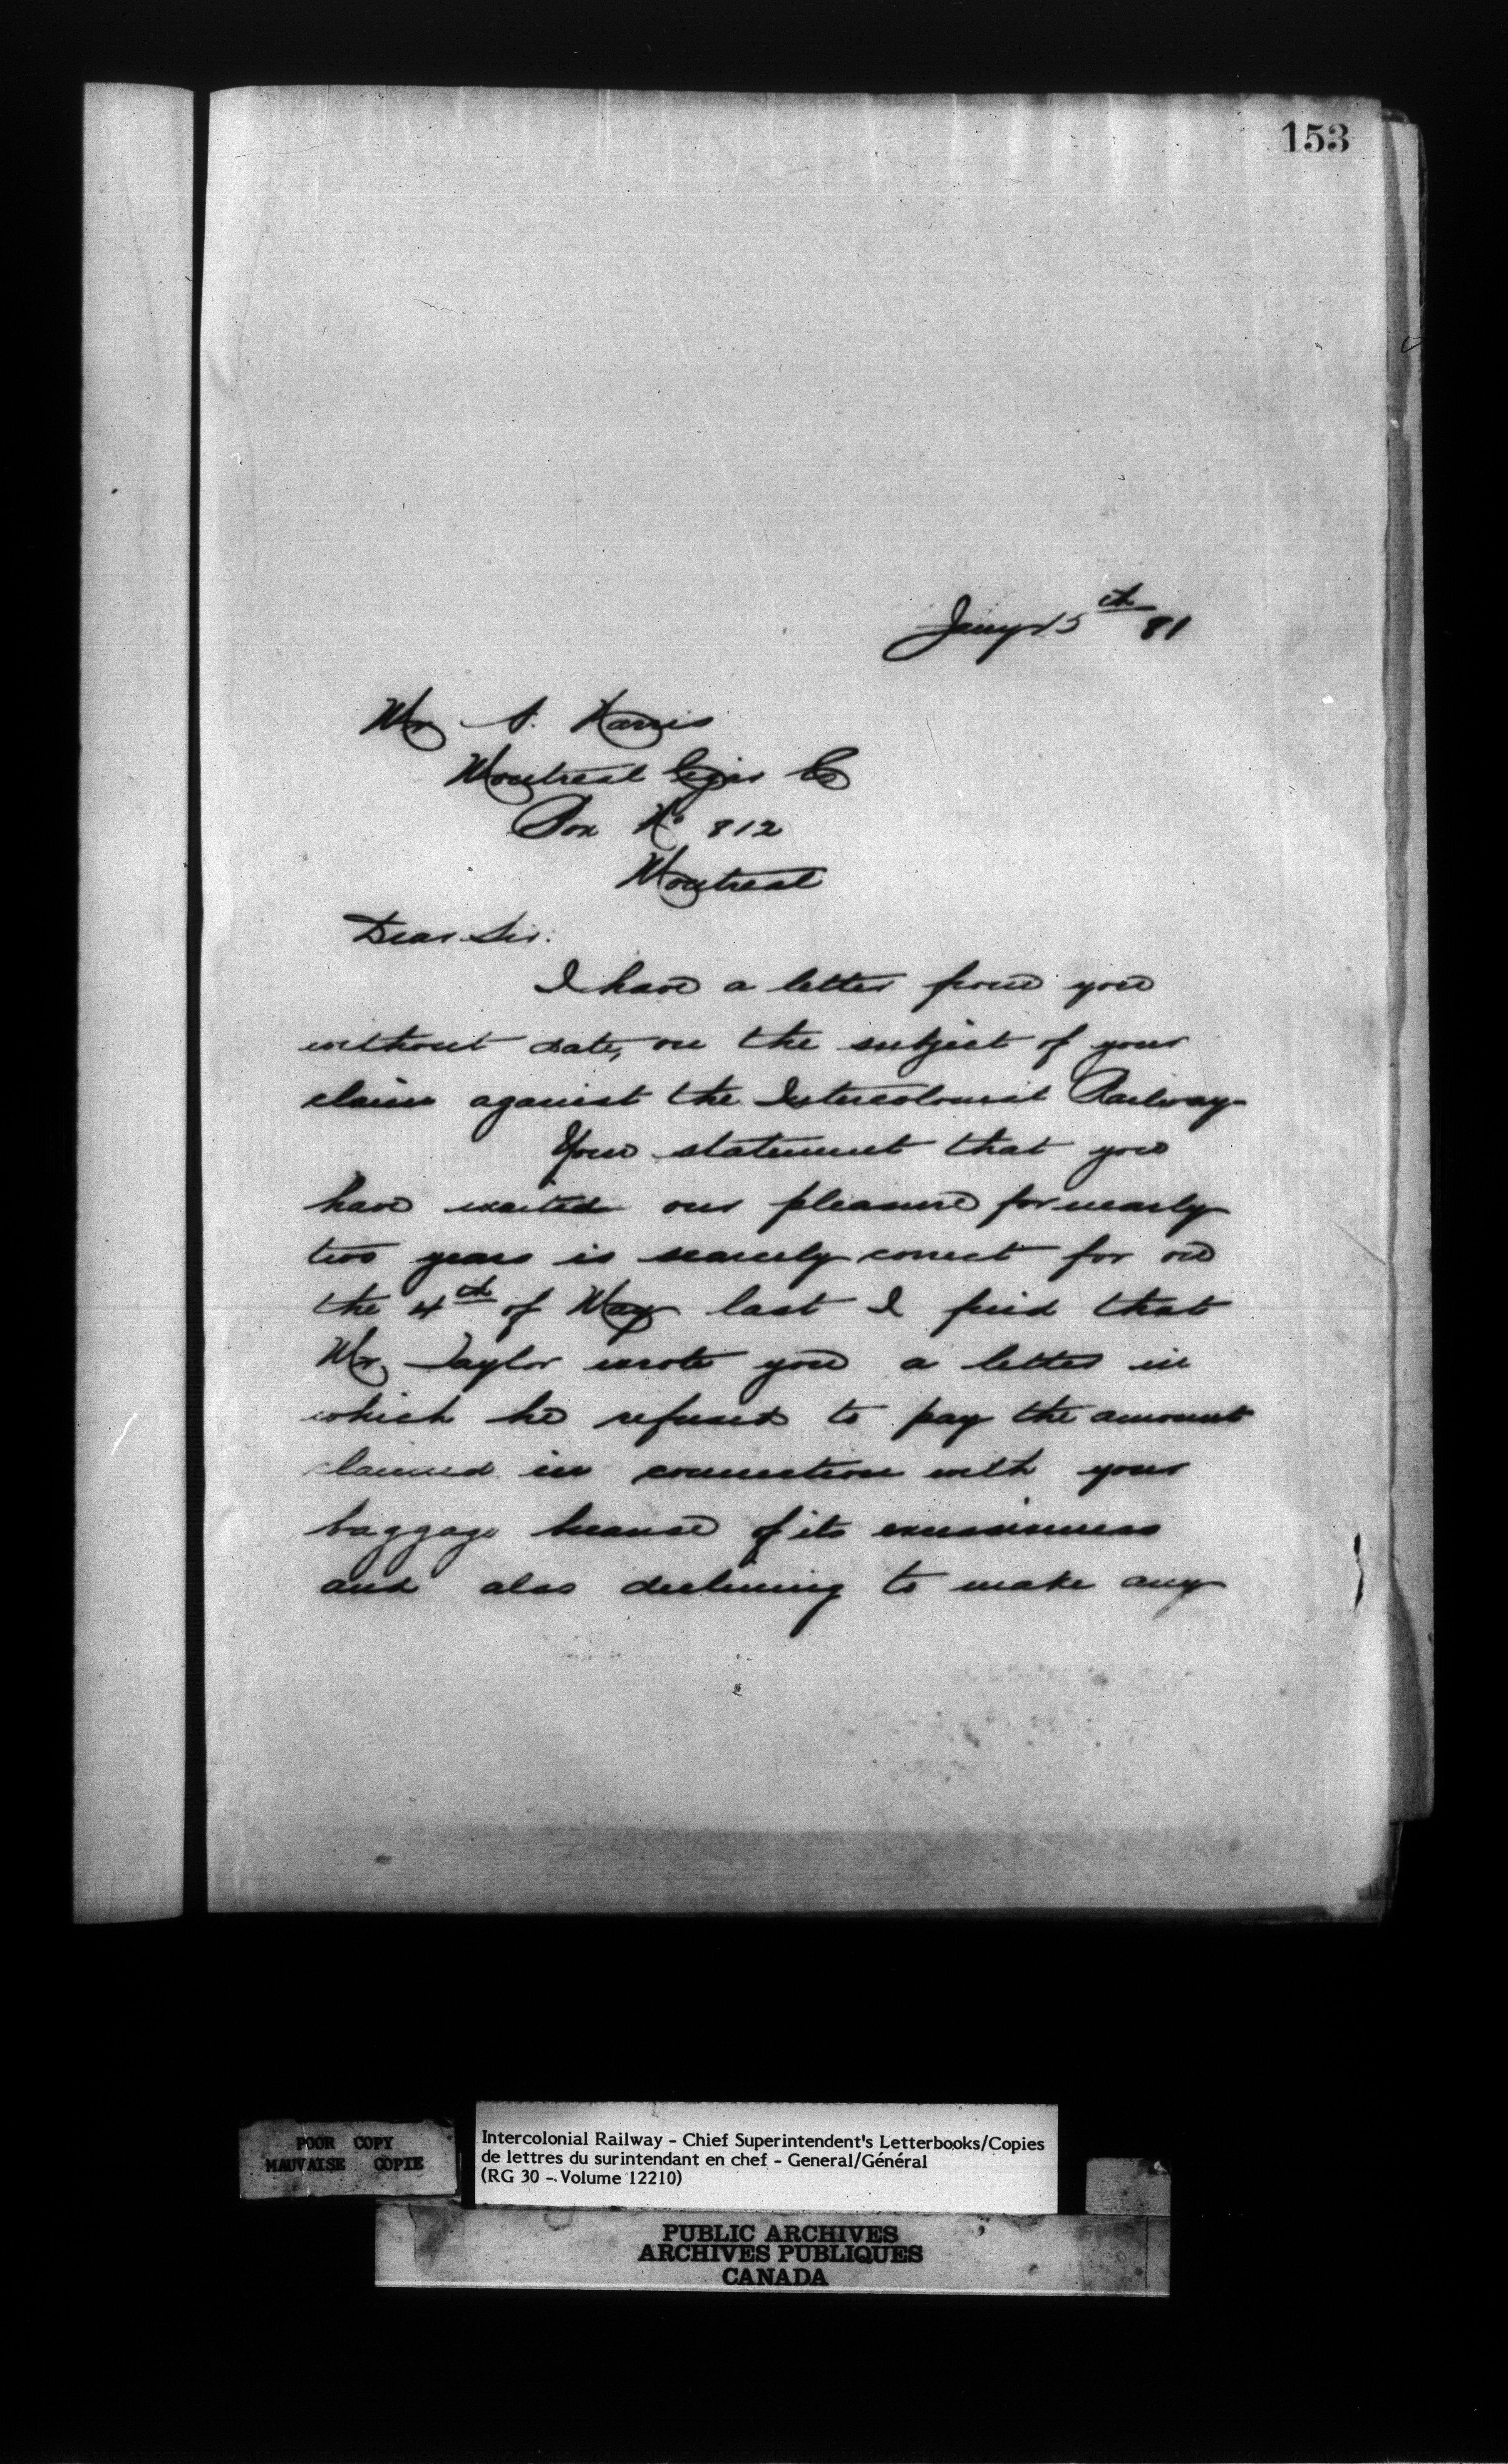 153
Jany 15th 81
Mr S. Harris
Montreal Cigar Co
Box No 812
Montreal
Dear Sir:
I have a letter from you
without date, on the subject of your
claim against the Intercolonial Railway.
Your statement that you
have waited our pleasure for nearly
two years is scarcely correct for on
the 4th of May last I find that
Mr. Taylor wrote you a letter in
which he refused to pay the amount
claimed in connection with your
baggage because of its excessiveness
and also declining to make any
POOR COPY
MAUVAISE COPIE
Intercolonial Railway - Chief Superintendent's Letterbooks/Copies
de lettres du surintendant en chef - General/Général
(RG 30 - Volume 12210)
PUBLIC ARCHIVES
ARCHIVES PUBLIQUES
CANADA